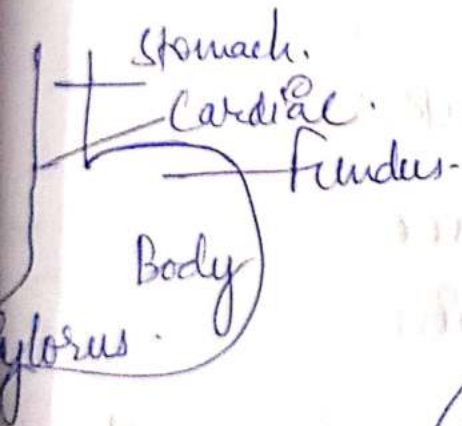 Stomach.
Cardiac.
Fundus-
Body
ylorus.